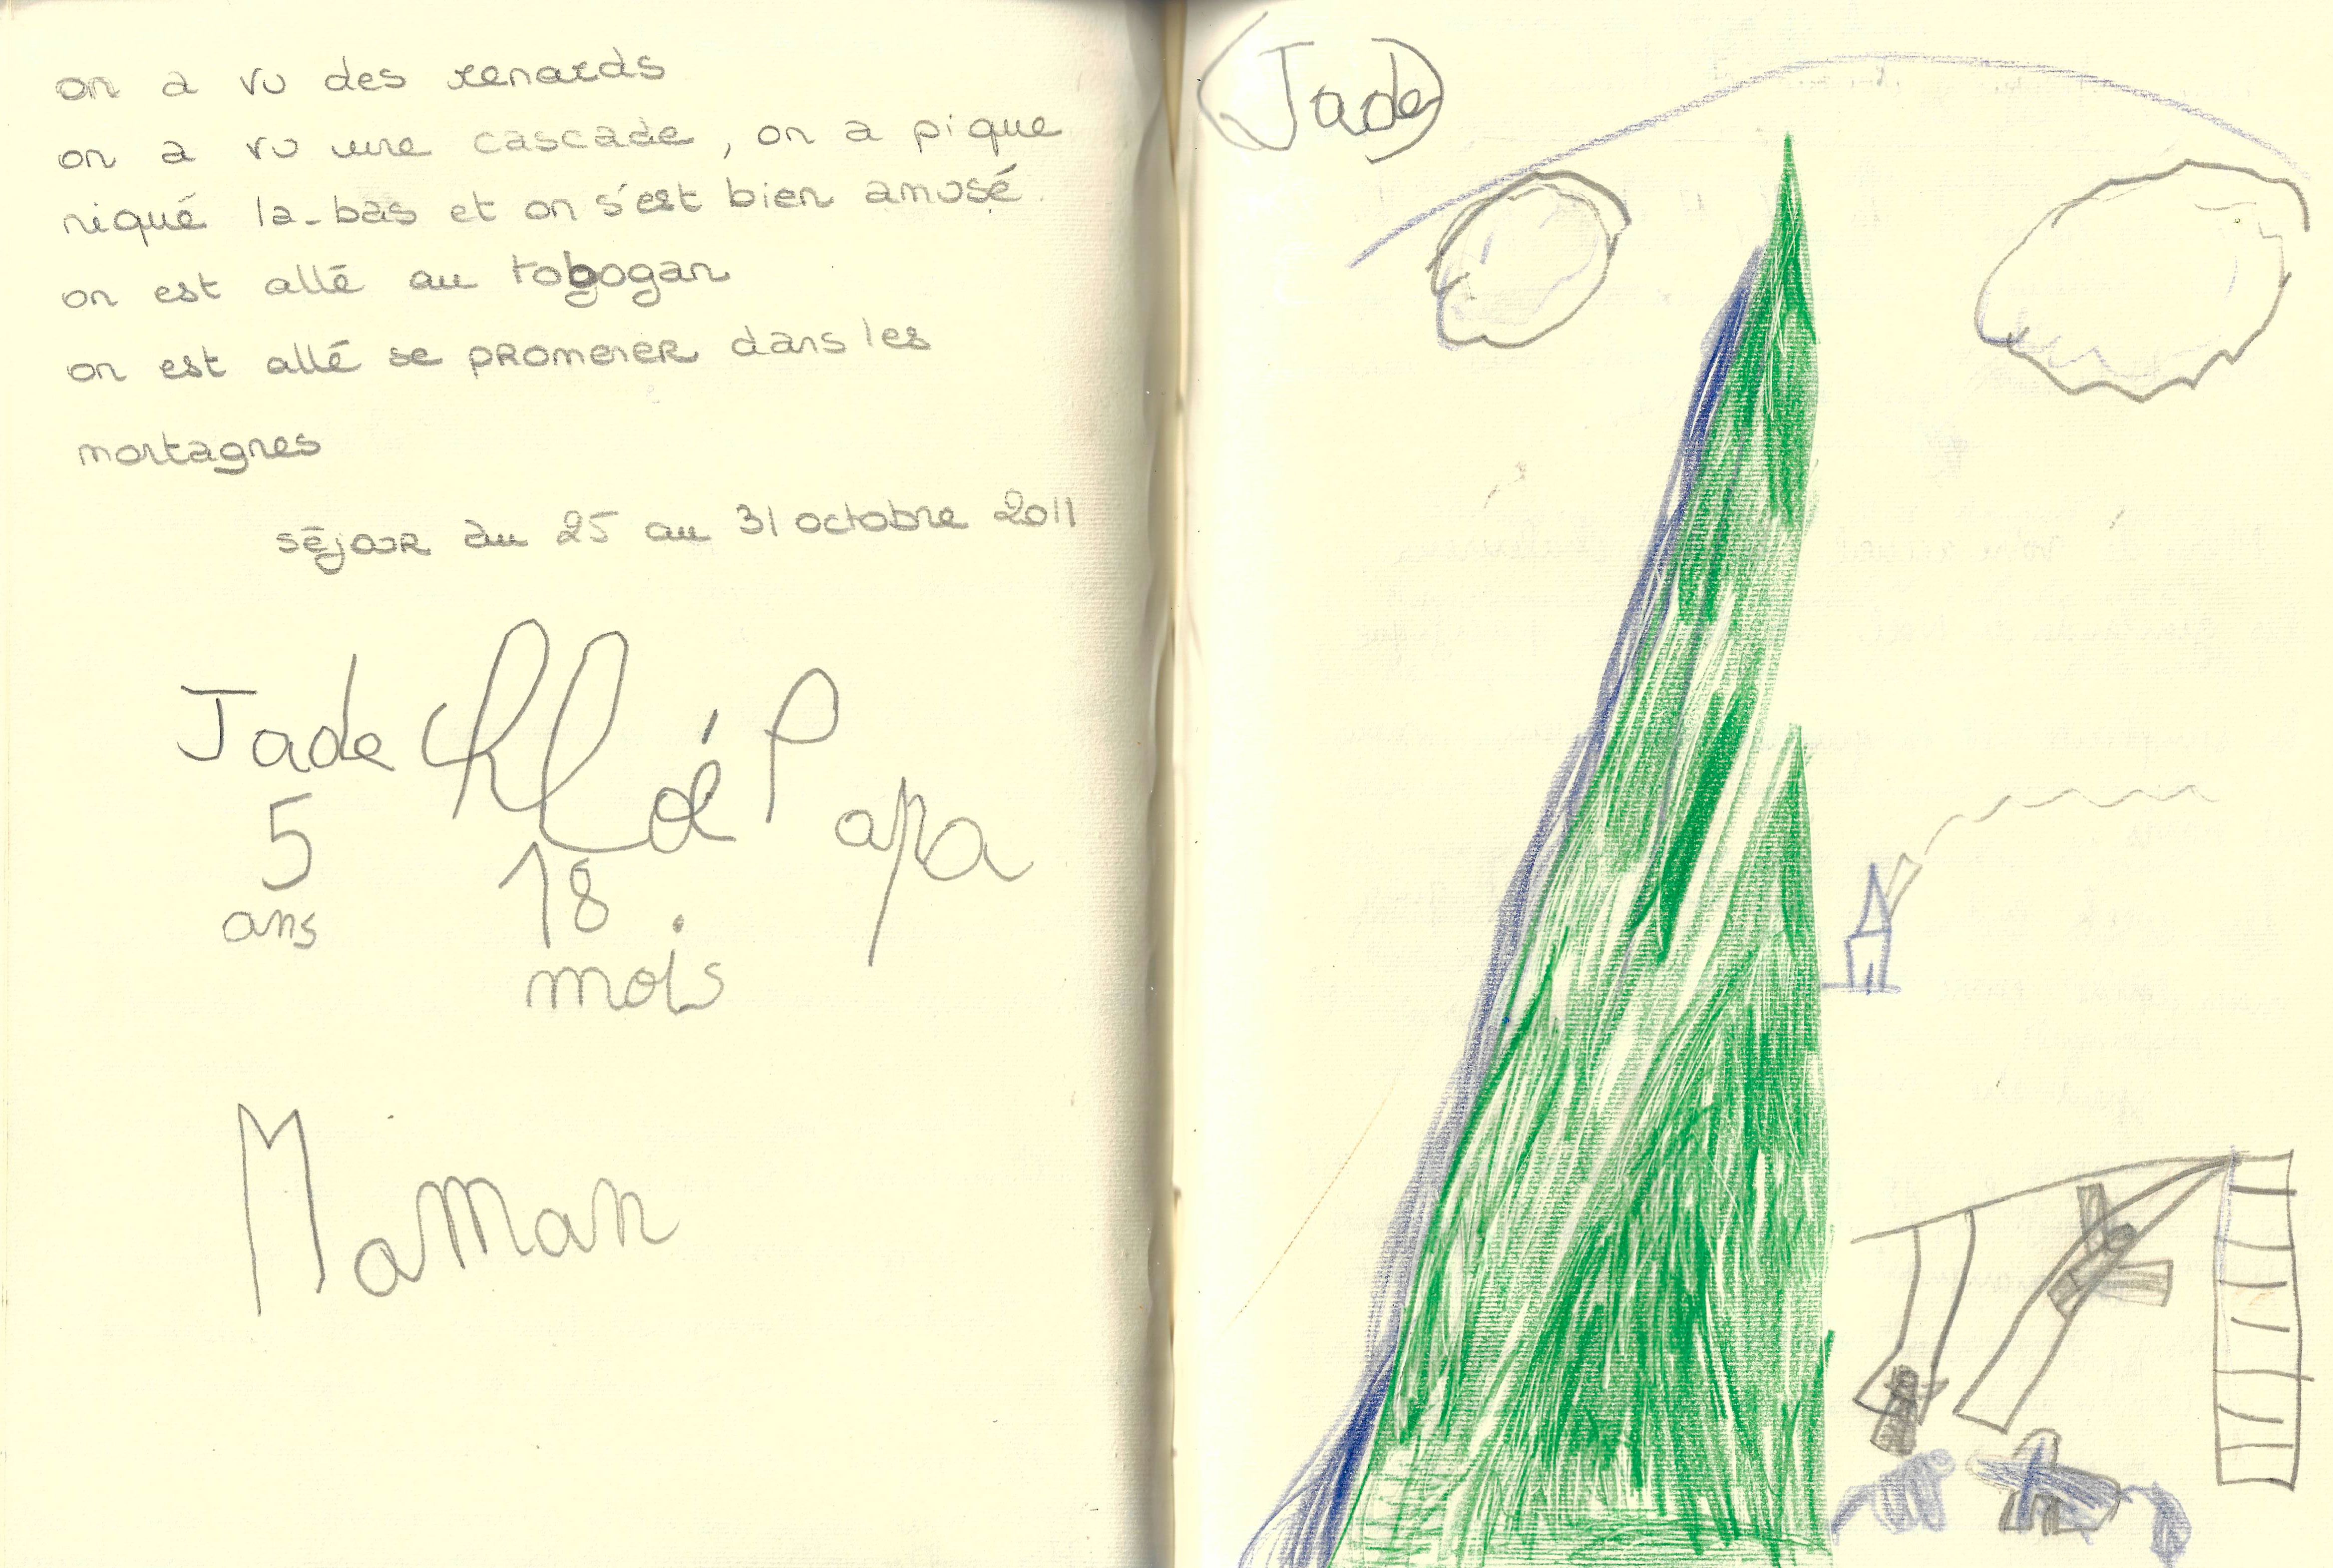 on a vu des renards
on a vu une cascade, on a pique
niqué la-bas et on s'est bien amusé
on est allé au tobogan
on est allé se promener dans les
montagnes
séjour du 25 au 31 octobre 2011
Jade Chloé Papa
5 18
ans mois
Maman
Jade